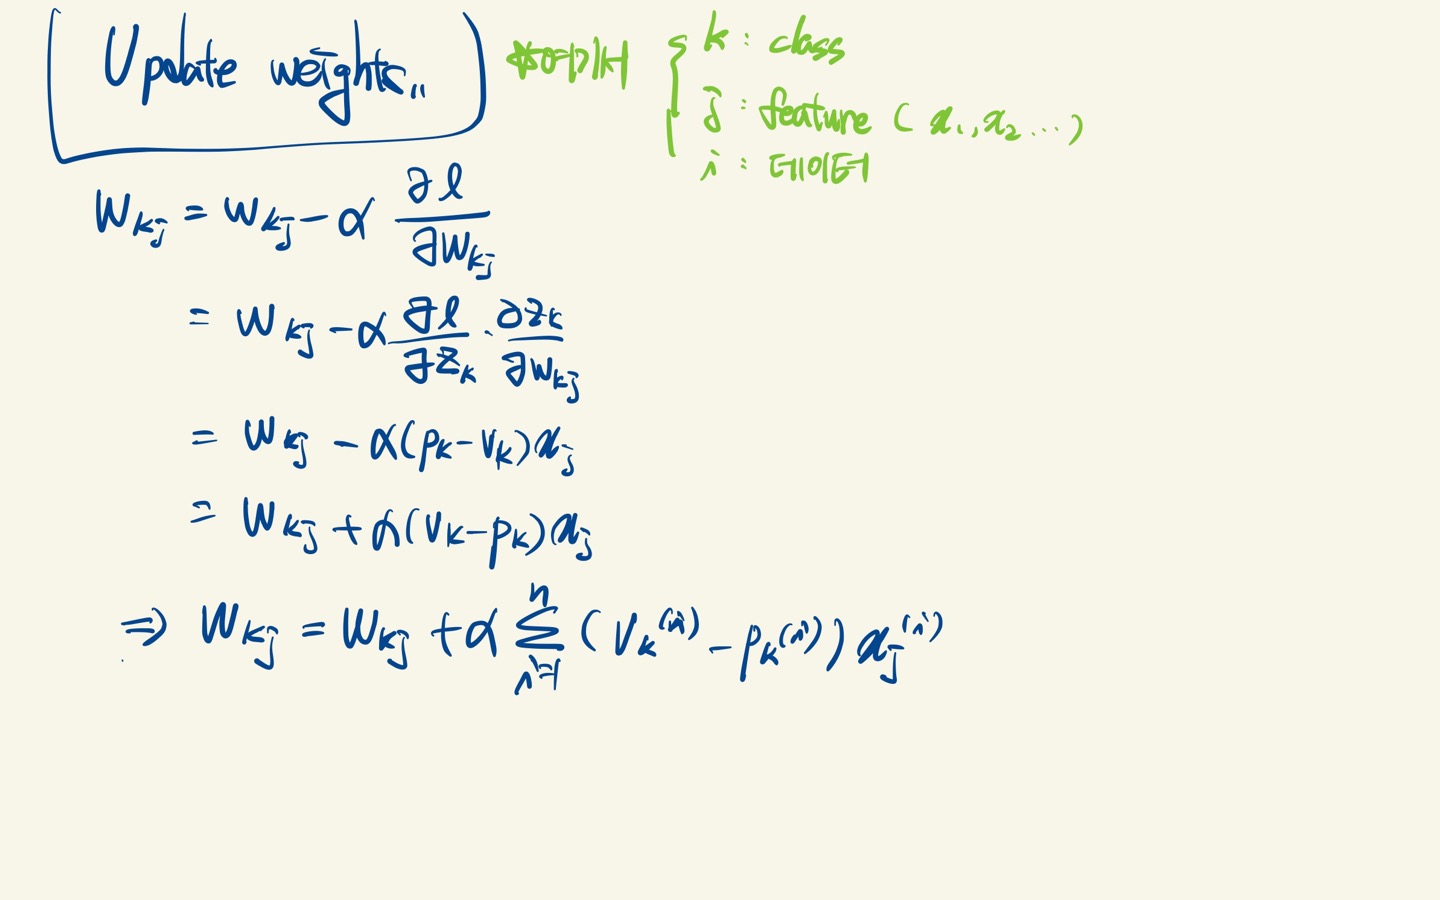 Update weights..
★여기서 { k : class
j : feature ( x₁, x₂ ... )
i : 데이터
W_kj = W_kj - α ∂l/∂W_kj
= W_kj - α ∂l/∂z_k · ∂z_k/∂W_kj
= W_kj - α(p_k - v_k)x_j
= W_kj + α(v_k - p_k)x_j
⇒ W_kj = W_kj + α Σ_{i=1}^{n} (v_k^(i) - p_k^(i)) x_j^(i)